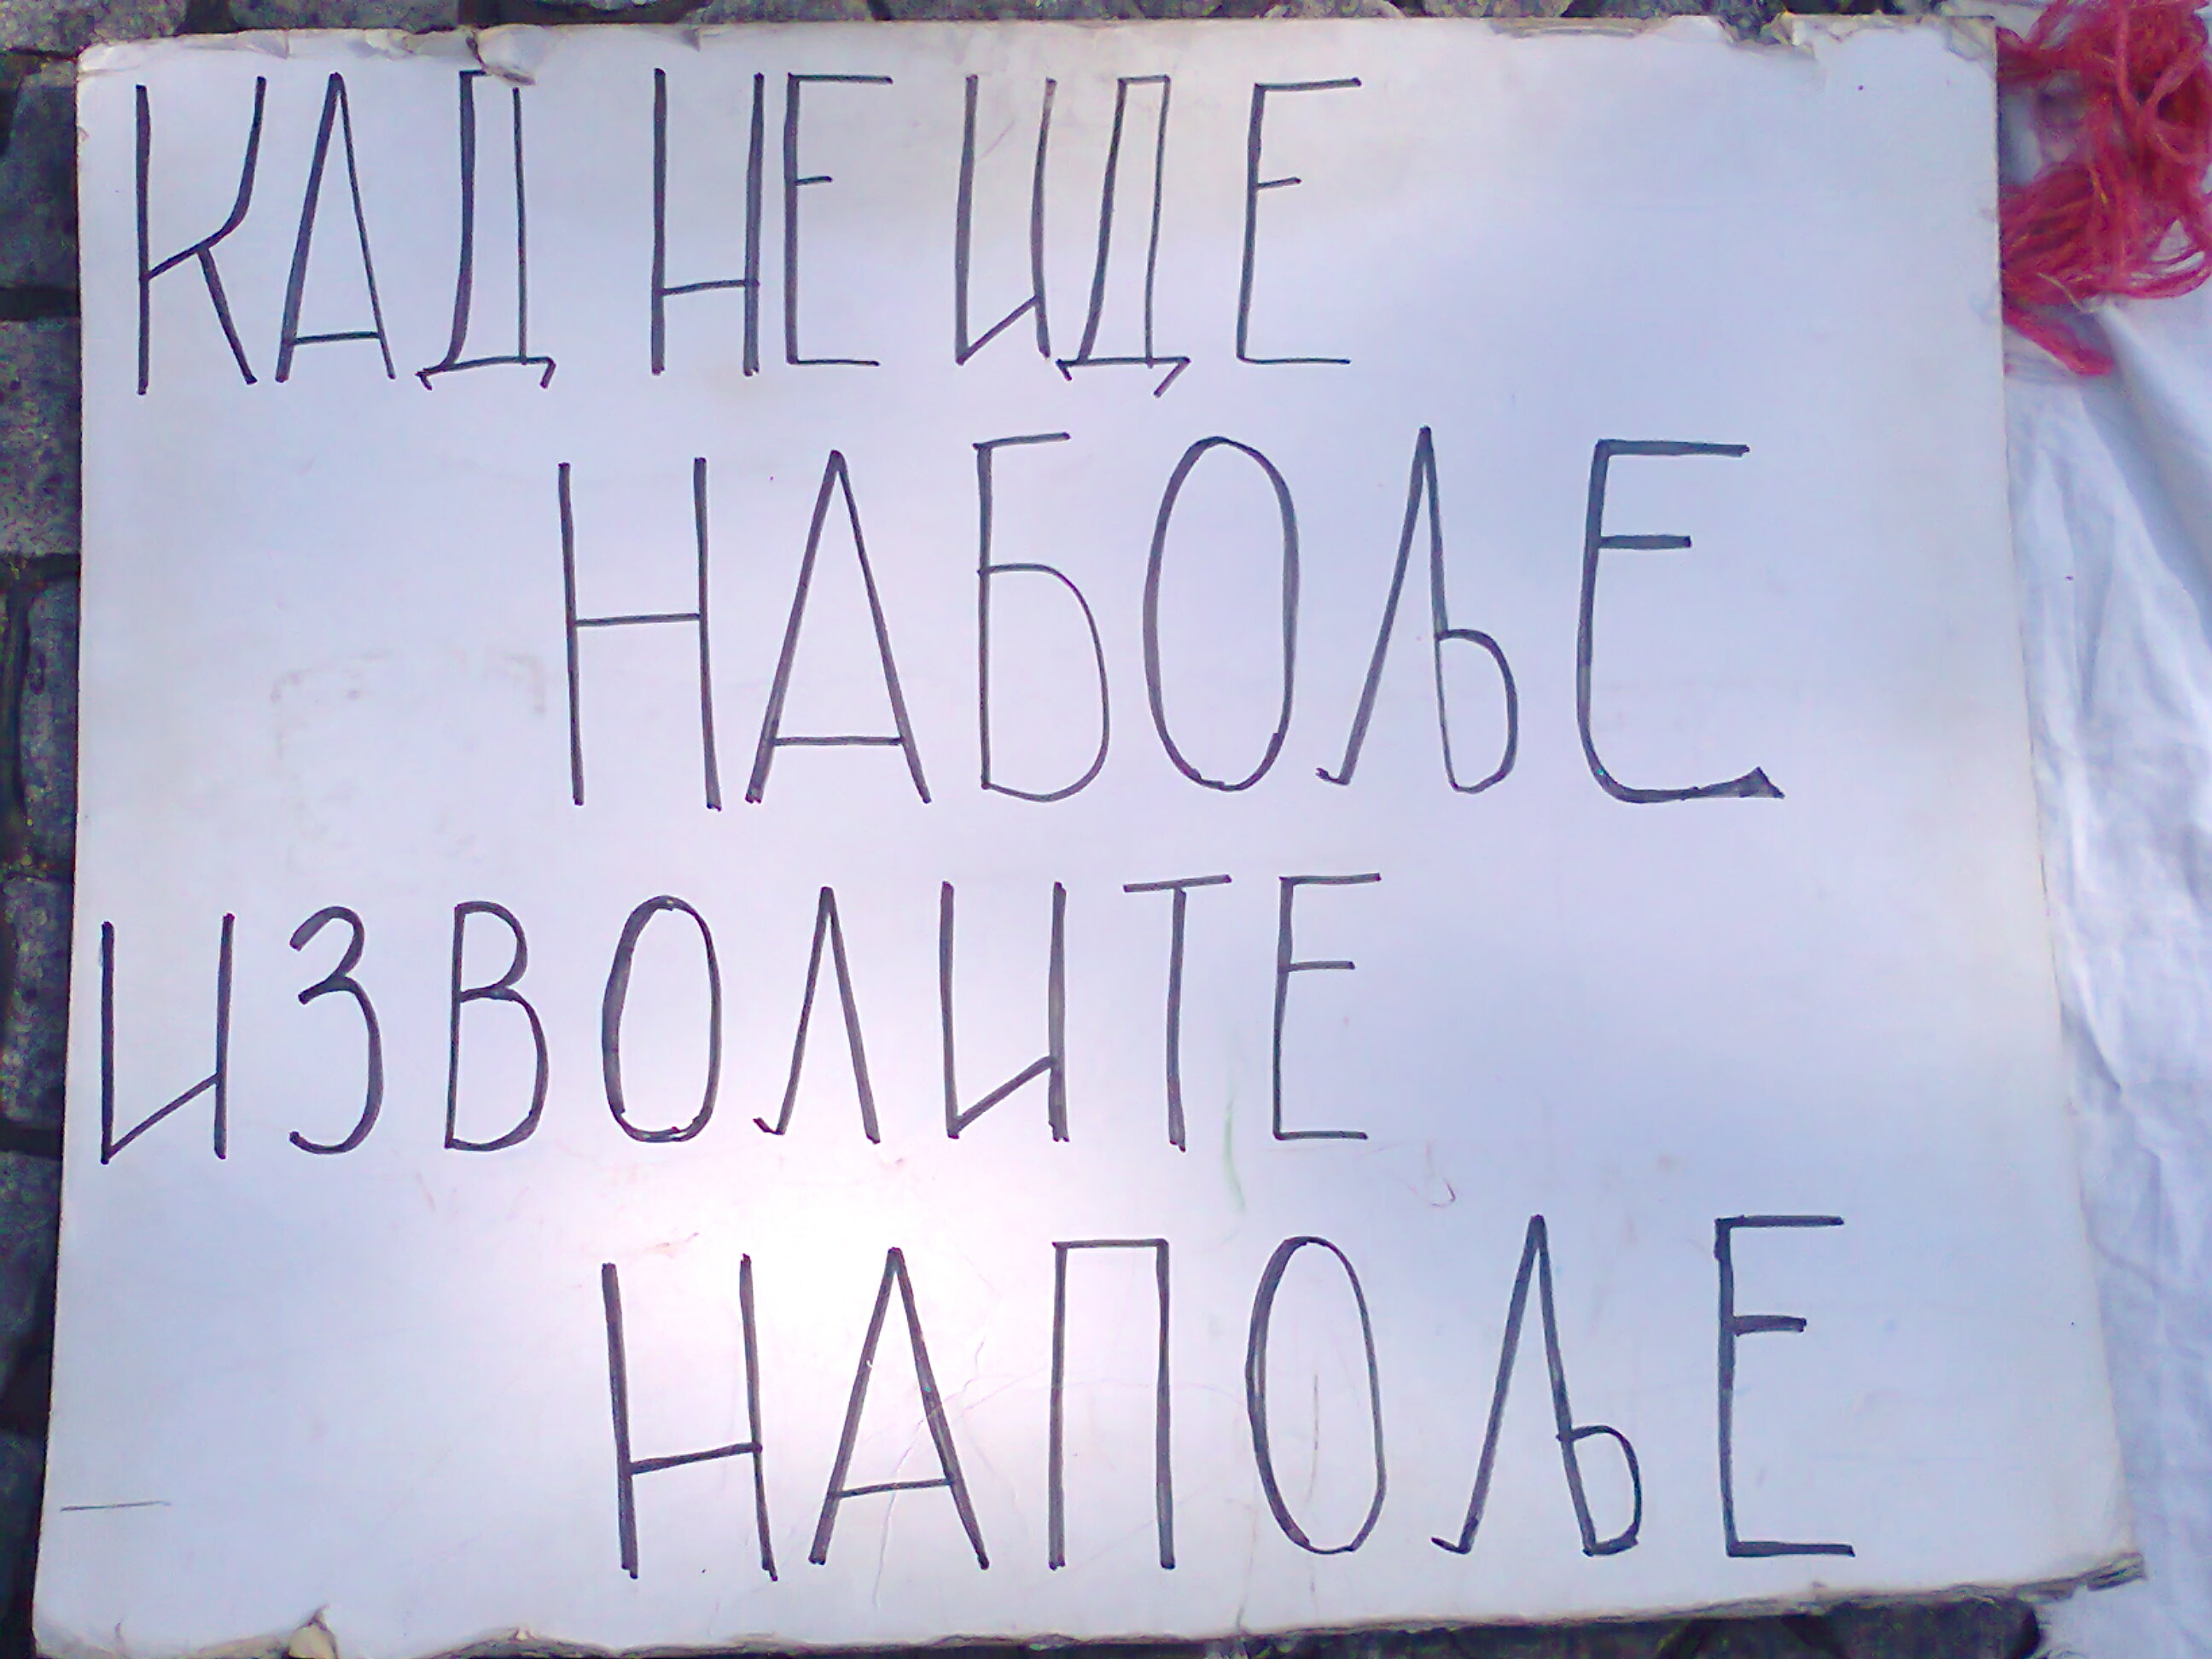 КАД НЕ ИДЕ
НАБОЉЕ
ИЗВОЛИТЕ
НАПОЉЕ